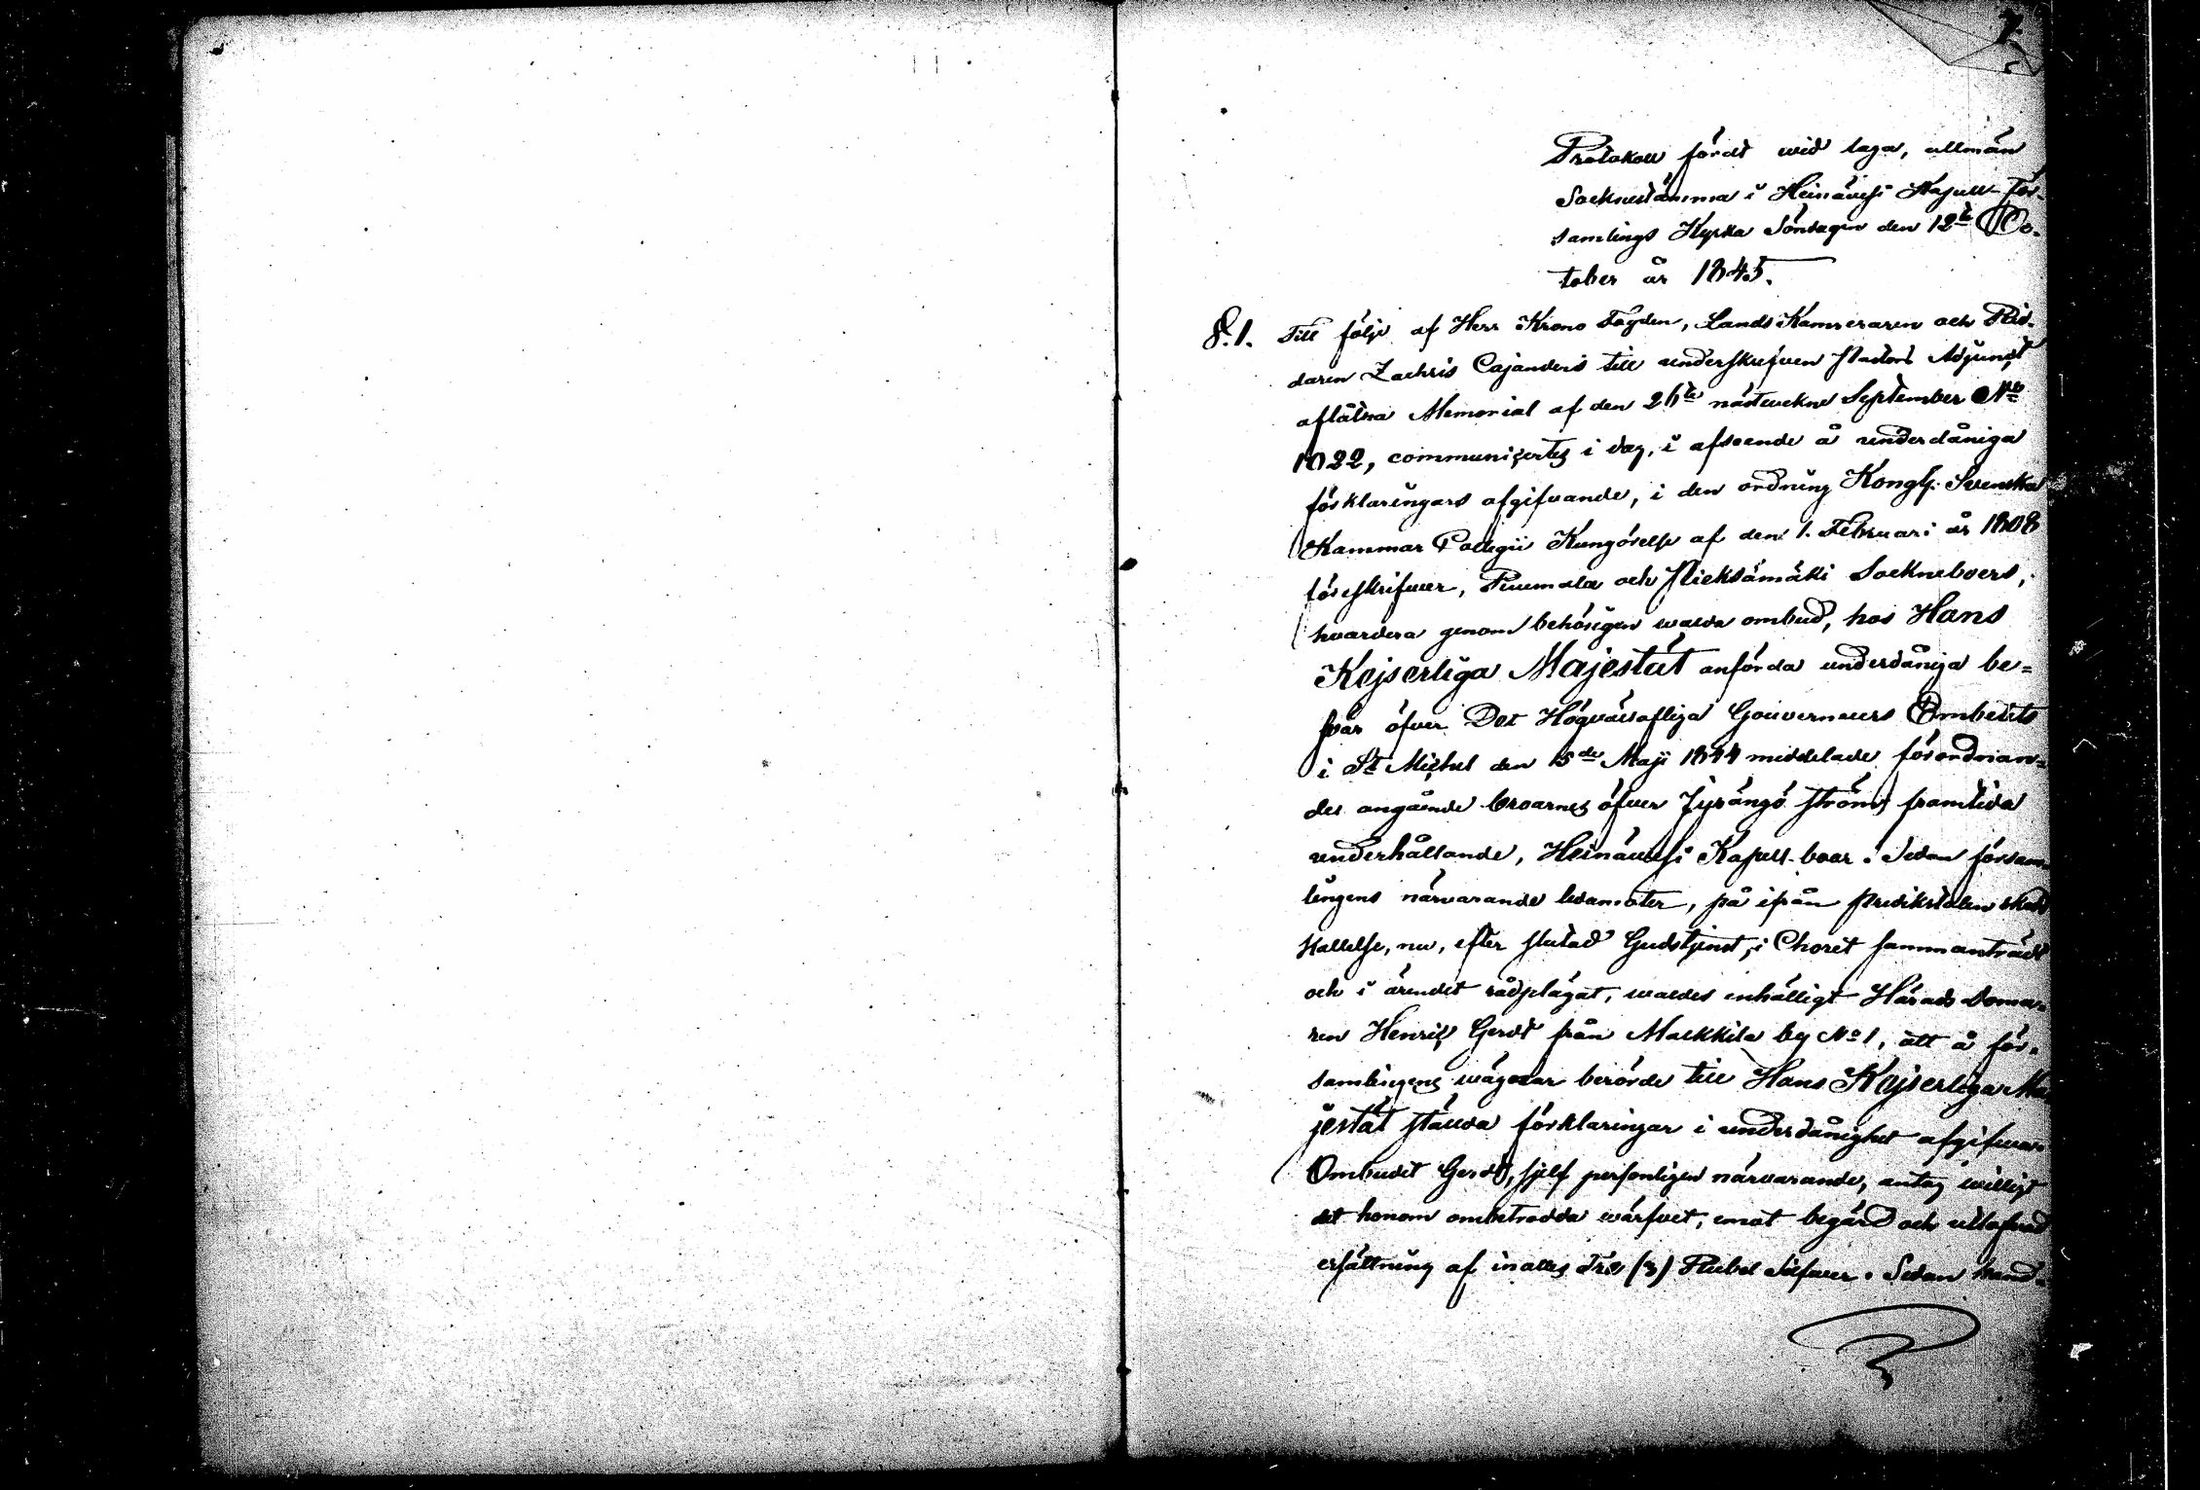 7.
Protokoll fördt wid laga, allmän
Socknestämma i Heinävesi Kapell För-
samlings Kyrka Söndagen den 12te Oc-
tober år 1845.
§.1. Till följe af Herr Krono Fogden, Lands Kamreraren och Rid-
daren Zachris Cajanders till underskrefven Pastors Adjunct
aflåtna Memorial af den 26te nästvekne September No
1022, communicertes i dag, i afseende å underdåniga
förklaringars afgifvande, i den ordning Kongl. Svenska
Kammar Collegii Kungörelse af den 1. Februari år 1808
föreskrifver, Puumala och Pieksämäki Sockneboers,
hvardera genom behörigen walda ombud, hos Hans
Kejserliga Majestät anförda underdåniga be-
svär öfver Det Högvälloflliga Gouverneurs Embetets
i St Michel den 15de Maji 1844 meddelade förordnan-
des angående broarnes öfver Jyrängö ströms framtida
underhållande, Heinävesi Kapell boar. Sedan försam-
lingens närvarande ledamöter, på ifrån predikstolen skedd
Kallelse, nu, efter slutad Gudstjenst, i Choret sammanträdt
och i ärendet rådplägat, waldes enhälligt Härads Doma-
ren Henric Gerdt från Malkkila by No 1, att å för-
samlingens wägnar berörde till Hans Kejserliga Ma-
jestät ställda förklaringar i underdånighet afgifva.
Ombudet Gerdt, sjelf personligen närvarande, antog willigt
det honom ombetrodda wärfvet, emot begärd och utlofvad
ersättning af inalles Tre (3) Rubel Silfver. Sedan hand-